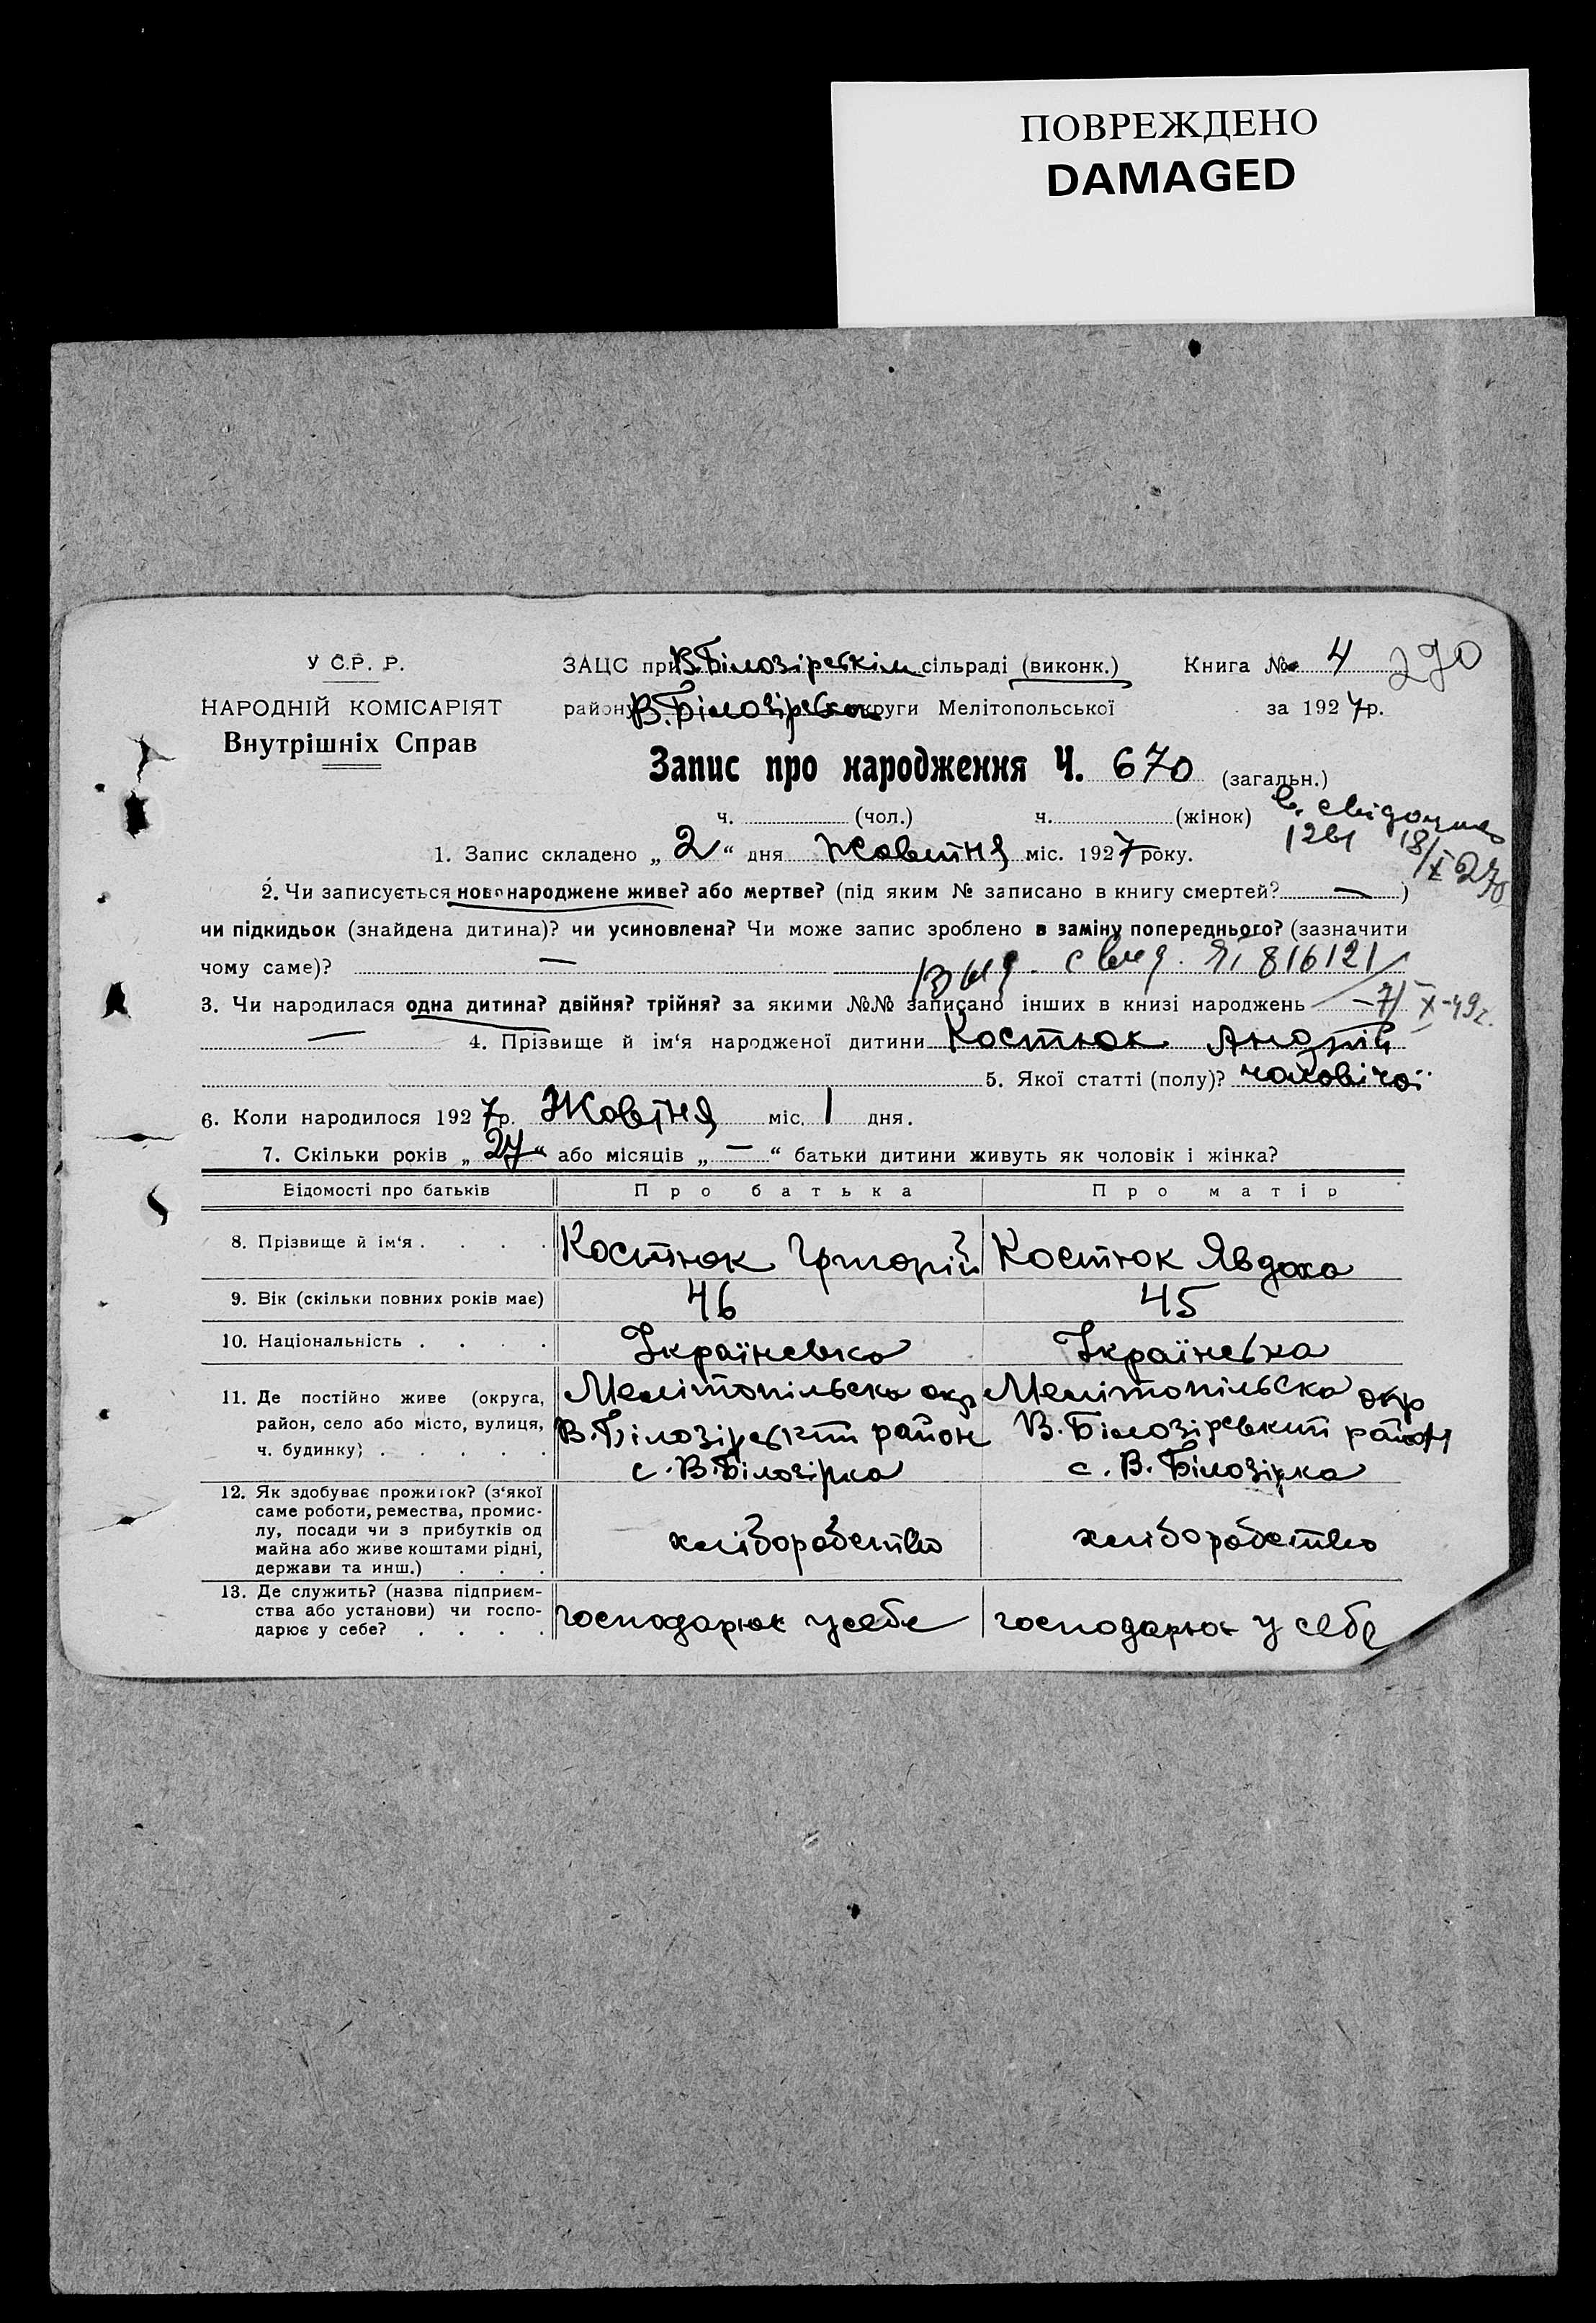 ПОВРЕЖДЕНО
DAMAGED
У С.Р. Р.
НАРОДНІЙ КОМІСАРІЯТ
Внутрішніх Справ
ЗАЦС при В.Білозірскім сільраді (виконк.) Книга № 4 270
району В.Білозірськ округи Мелітопольської за 1927 р.
Запис про народження Ч. 670 (загальн.)
ч. (чол.) ч. (жінок)
1261 18/X 27
1. Запис складено „ 2 “ дня Жовтня міс. 1927 року.
2. Чи записується новонароджене живе? або мертве? (під яким № записано в книгу смертей? — )
чи підкидьок (знайдена дитина)? чи усиновлена? Чи може запис зроблено в заміну попереднього? (зазначити
чому саме)? — Выд. свид. ЯI 816121
3. Чи народилася одна дитина? двійня? трійня? за якими №№ записано інших в книзі народжень — 7/X-49г.
— 4. Прізвище й ім‘я народженої дитини Костюк Андрій
5. Якої статті (полу)? чоловічої
6. Коли народилося 1927 р. Жовтня міс. 1 дня.
7. Скільки років „ 27 “ або місяців „ — “ батьки дитини живуть як чоловік і жінка?
Відомості про батьків Про батька Про матір
8. Прізвище й ім‘я . . . . Костюк Григорій Костюк Явдоха
9. Вік (скільки повних років має) 46 45
10. Національність . . . . Українська Українська
11. Де постійно живе (округа, Мелітопільска окр Мелітопільска окр
район, село або місто, вулиця, В.Білозірський район В.Білозірський район
ч. будинку) . . . . . с. В.Білозірка с. В. Білозірка
12. Як здобуває прожиток? (з‘якої
саме роботи, ремества, промис-
лу, посади чи з прибутків од хліборобство хліборобство
майна або живе коштами рідні,
держави та инш.) . . .
13. Де служить? (назва підприєм-
ства або установи) чи госпо- господарює у себе господарює у себе
дарює у себе? . . . .